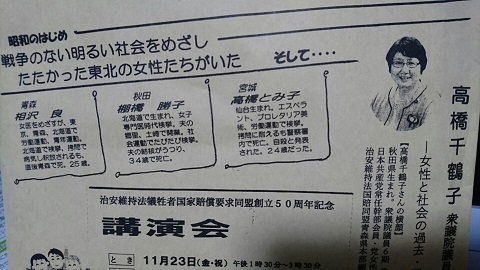 昭和のはじめ
戦争のない明るい社会をめざし
たたかった東北の女性たちがいた
そして‥‥
青森
相沢 良
女医をめざすが、東
京、青森、北海道で
労働運動、青年運動。
北海道で検挙、拷問で
病気し釈放されるも、
直後青森で死。25歳。
秋田
棚橋 勝子
北海道で生まれ、女子
専門医時代検挙。夫の
郷里、土崎で開業。社
会運動でたびたび検挙。
夫の結核がうつり、
34歳で死亡。
宮城
高橋とみ子
仙台生まれ。エスペラ
ント、プロレタリア美
術、労働運動で検挙。
拷問に耐えるも警察署
内で死亡。自殺と発表
された。24歳だった。
高橋千鶴子 衆議院議員
―女性と社会の過去・
【高橋千鶴子さんの横顔】
秋田県生まれ。衆議院議員6期
日本共産党常任幹部会員・党女性
治安維持法国賠同盟青森県本部
治安維持法犠牲者国家賠償要求同盟創立50周年記念
講演会
とき 11月23日(金・祝) 午後1時30分~3時30分